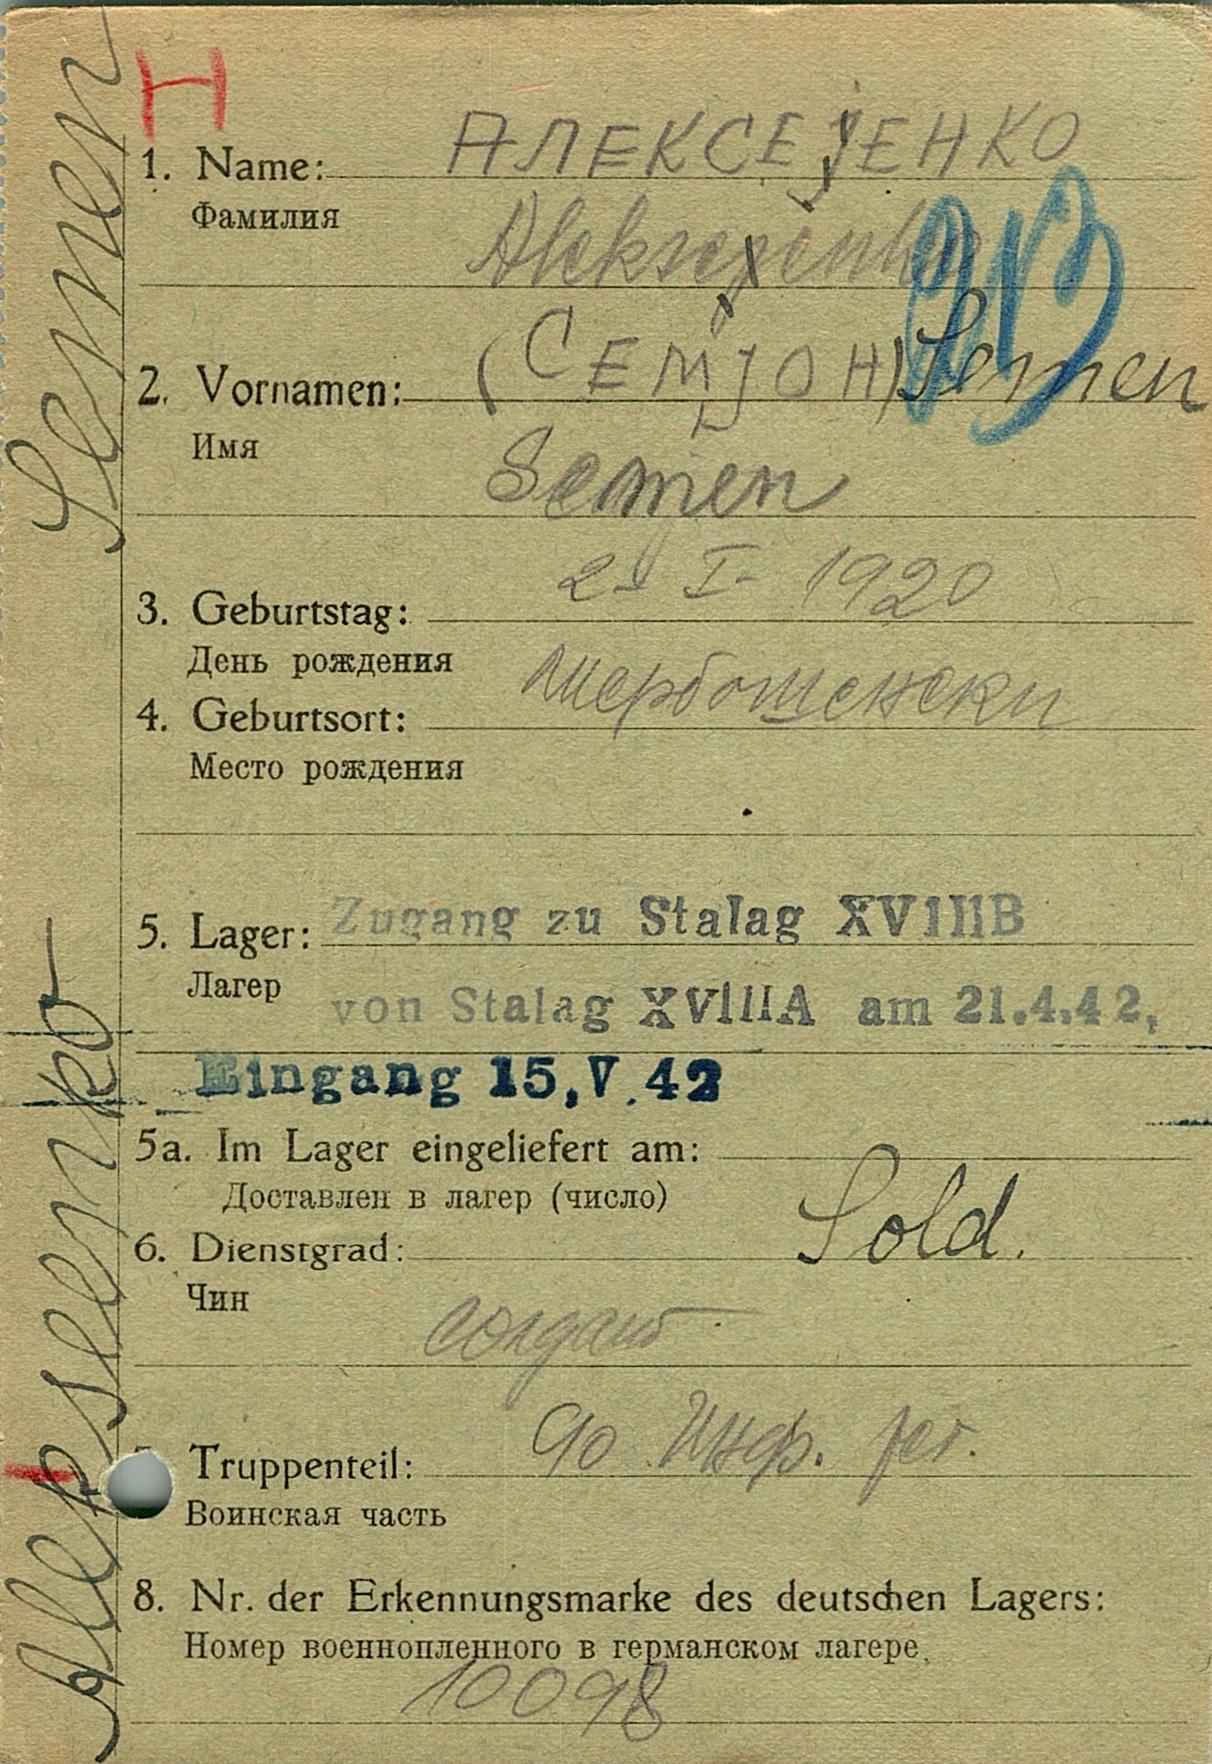 Н
1. Name: АЛЕКСЕJЕНКО
Фамилия
Aleksejenko
2. Vornamen: (СЕМJОН) Semen
Имя
Semen
3. Geburtstag: I- 1920
День рождения
4. Geburtsort:
Место рождения
5. Lager: Zugang zu Stalag XVIIIB
Лагер
von Stalag XVIIIA am 21.4.42,
Eingang 15.V.42
5a. Im Lager eingeliefert am:
Доставлен в лагер (число)
6. Dienstgrad: Sold.
Чин
солдат
Truppenteil: 90 Инф. рег.
Воинская часть
8. Nr. der Erkennungsmarke des deutschen Lagers:
Номер военнопленного в германском лагере
10098
Alekseenko Semen